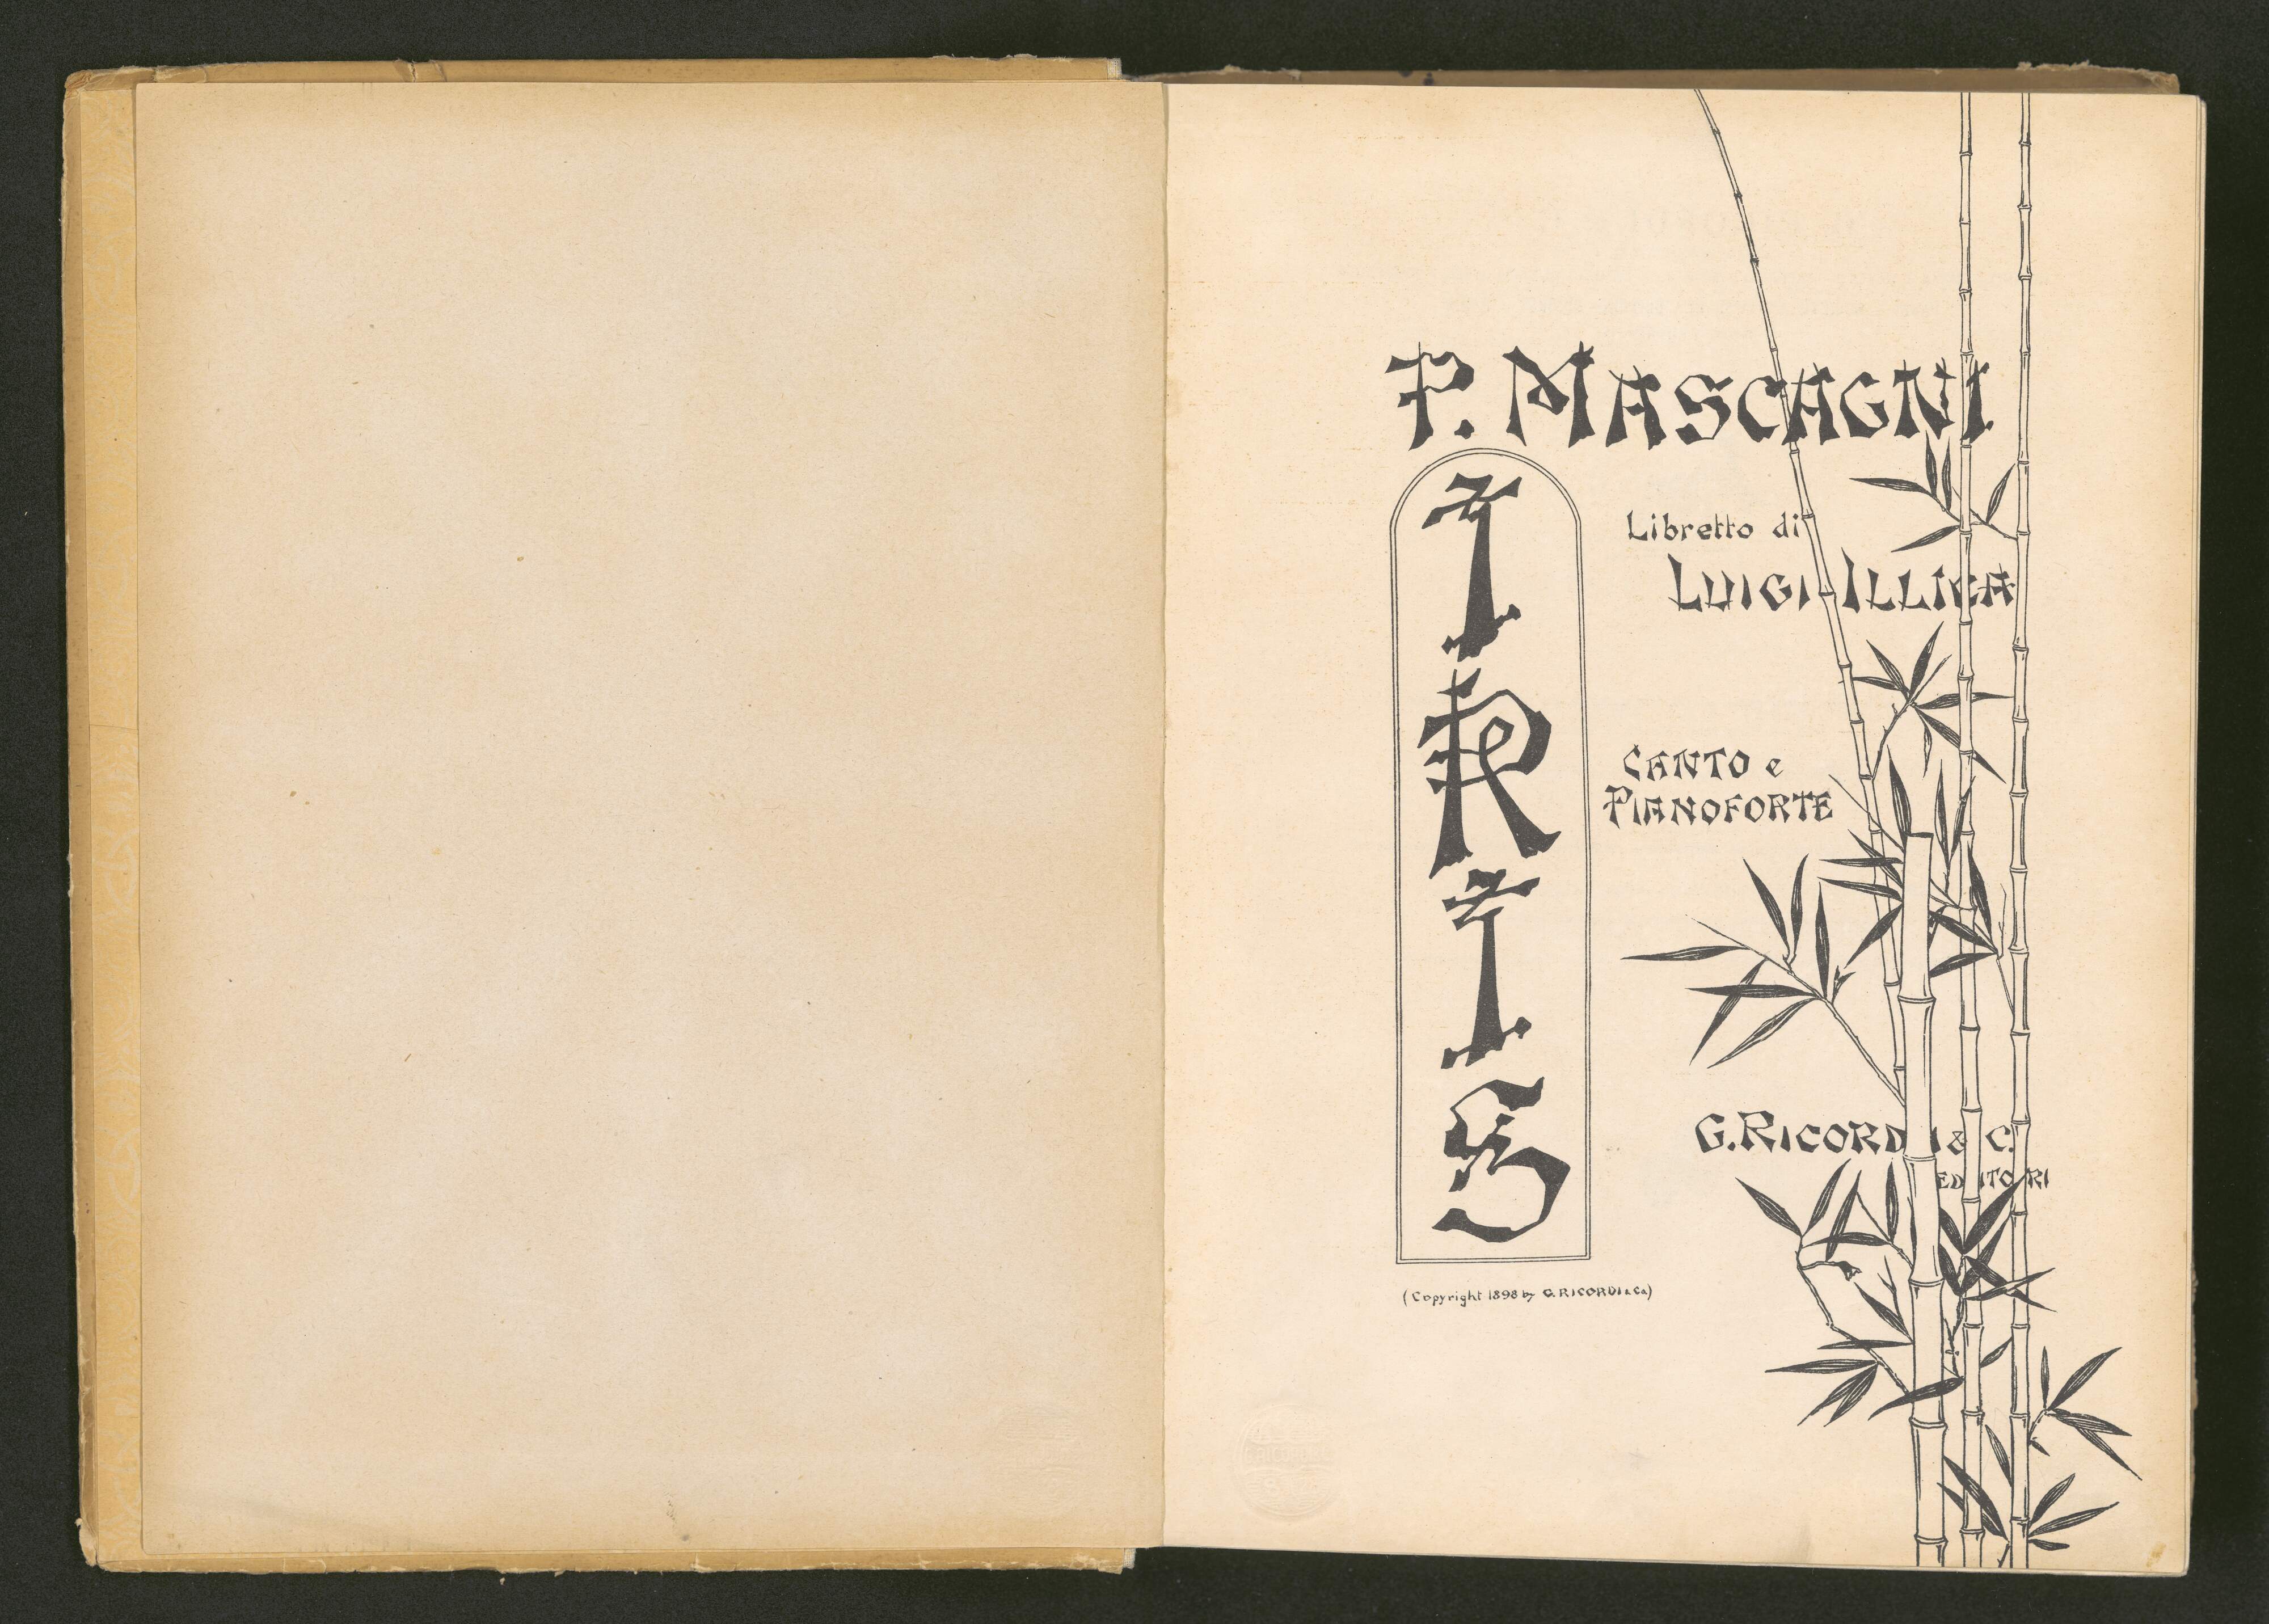 P. MASCAGNI
IRIS
Libretto di
LUIGI ILLICA
CANTO e
PIANOFORTE
G. RICORDI & C.
EDITORI
(Copyright 1898 by G. RICORDI & Co.)